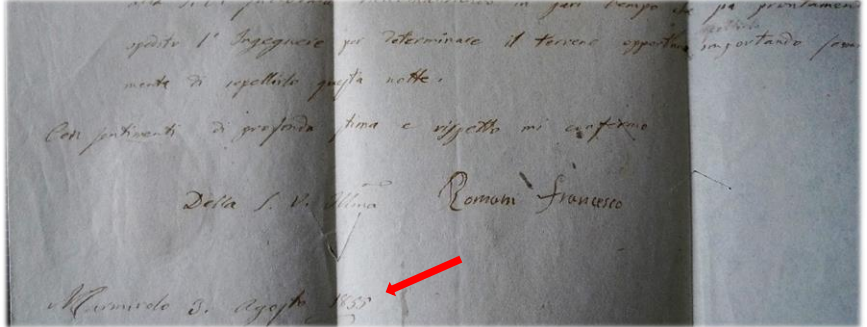 alla S. V. in pari tempo che sia prontamen
spedito l'Ingegnere per determinare il terreno opportuno importando somma
mente di sepellirlo questa notte.
Con sentimenti di profonda stima e rispetto mi confermo
Della S. V. Illma Romani Francesco
Marmirolo 3. Agosto 1855